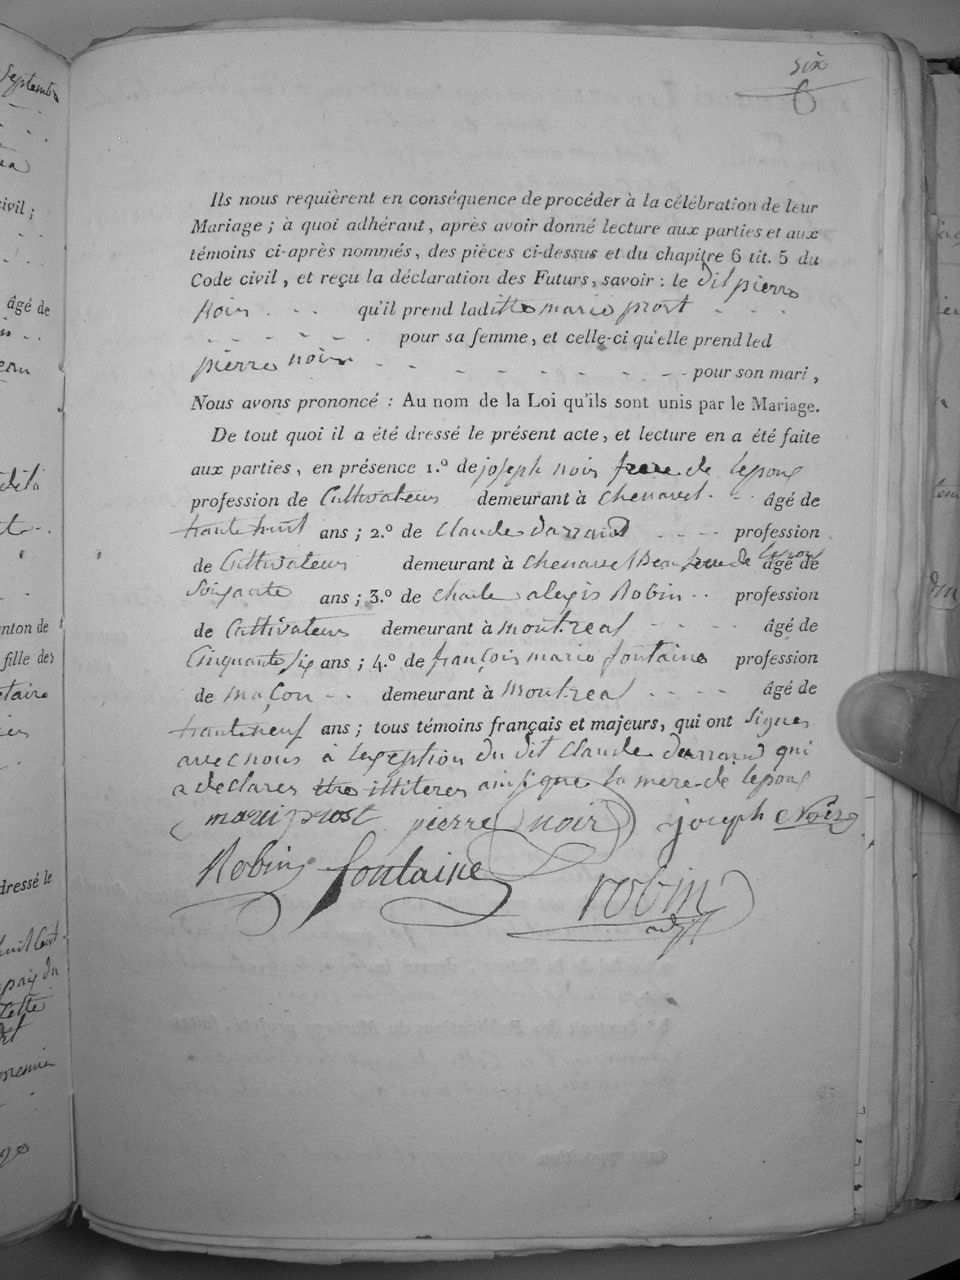 six
6
Ils nous requièrent en conséquence de procéder à la célébration de leur
Mariage ; à quoi adhérant, après avoir donné lecture aux parties et aux
témoins ci-après nommés, des pièces ci-dessus et du chapitre 6 tit. 5 du
Code civil, et reçu la déclaration des Futurs, savoir : le dit pierre
noir qu'il prend laditte marie prost
pour sa femme, et celle-ci qu'elle prend led
pierre noir pour son mari,
Nous avons prononcé : Au nom de la Loi qu'ils sont unis par le Mariage.
De tout quoi il a été dressé le présent acte, et lecture en a été faite
aux parties, en présence 1.º de joseph noir frere de lepoux
profession de Cultivateur demeurant à chenavel âgé de
trante huit ans ; 2.º de claude darrand profession
de Cultivateur demeurant à chenavel Beau frere de lepoux âgé de
Soixante ans ; 3.º de charle alexis Robin profession
de Cultivateur demeurant à montreal âgé de
Cinquante six ans ; 4.º de françois marie fontaine profession
de maçon demeurant à Montreal âgé de
trante neuf ans ; tous témoins français et majeurs, qui ont signes
avec nous à lexception du dit claude darrand qui
a declares etre illiteres ainsi que la mere de lepoux
marie prost pierre noir joseph Noir
Robin fontaine robin
adjt
septembre
civil ;
âgé de
canton de
fille des
dressé le
huit Cent